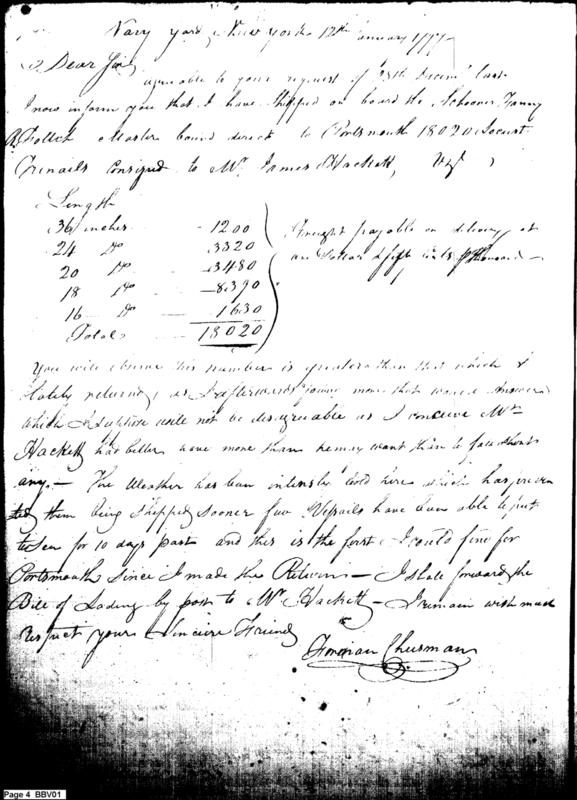 Navy yard New york 12th January 1797
Dear Sir
agreeable to your request of 28th Decemr last
I now inform you that I have Shipped on board the Schooner Fanny
Master bound direct to Portsmouth 18020 Locust
Trenails consigned to Mr. James Hackett, Vizt
Length
36 inches 1200
24 Do 3320
20 Do 3480
18 Do 8390
16 Do 1630
Total 18020
freight payable on delivery at
one Dollar & fifty Cents P thousand
You will observe this number is greater than that which I
lately returned, as I afterwards found more that would answer
which I suppose will not be disagreeable as I conceive Mr
Hackett had better have more than he may want than to fall short
any. The Weather has been intensely Cold here which has preven
ted them being Shipped sooner few Vessails have been able to put
to Sea for 10 days past and this is the first I could find for
Portsmouth Since I made the Return I shall forward the
Bill of Lading by post to Mr. Hackett I remain with much
respect your Sincere Friend
Forman Cheesman
Page 4 BBV01